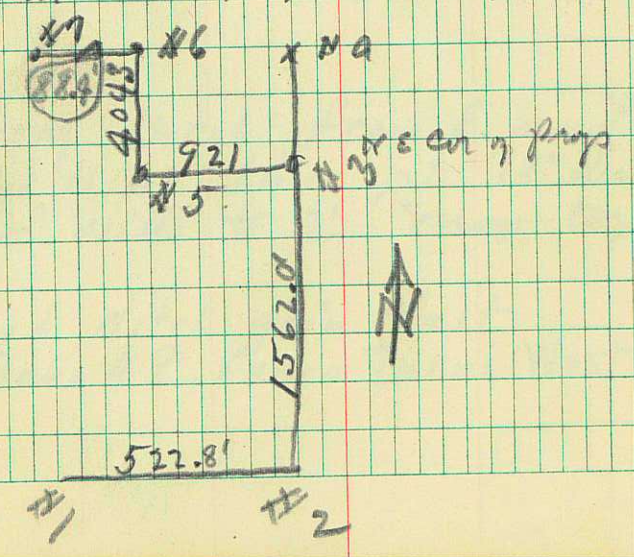 #7
#6
88.4'
4043
921
#5
#3
N E Cor of Prop
1562.0
N
522.8'
#1
#2